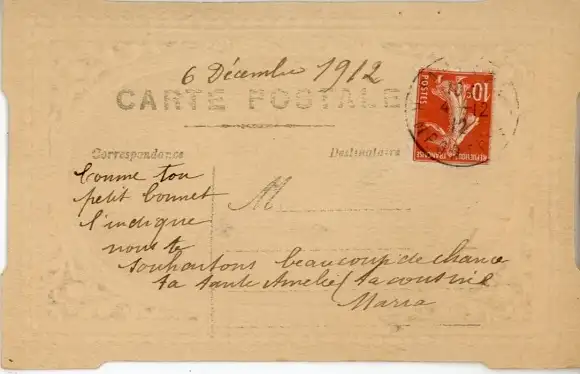 6 Décembre 1912
CARTE POSTALE
10c
POSTES
REPUBLIQUE FRANCAISE
Correspondance
Destinataire
M
comme ton
petit bonnet
l'indique
nous te
souhaitons beaucoup de chance
ta tante Amelie ta cousine
Maria